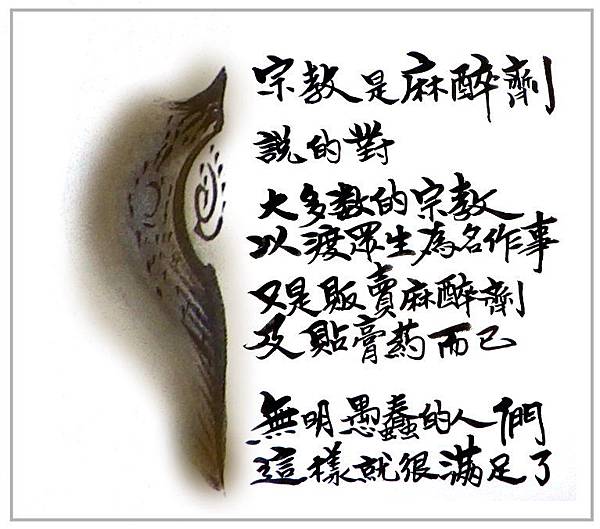 宗教是麻醉劑
說的對
大多数的宗教
以渡眾生為名作事
又是販賣麻醉劑
及貼膏葯而已
無明愚蠢的人們
這樣就很滿足了